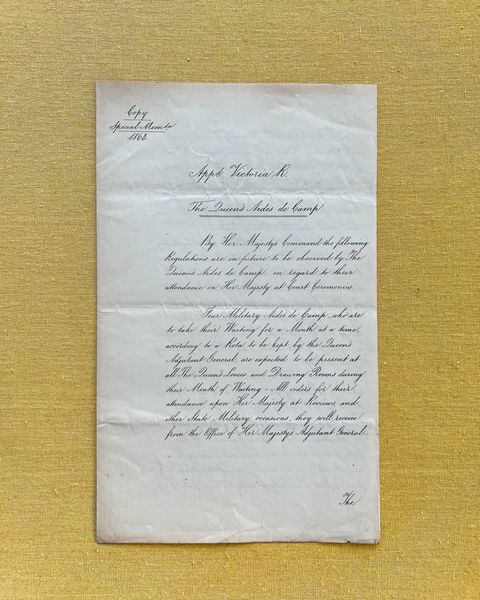 Copy
Special Memda
1865.
Appd Victoria R.
The Queen's Aides de Camp.
By Her Majesty's Command the following
Regulations are in future to be observed by The
Queen's Aides de Camp, in regard to their
attendance on Her Majesty at Court Ceremonies.
Four Military Aides de Camp, who are
to take their Waiting for a Month at a time,
according to a Rota to be kept by the Queen's
Adjutant General, are expected to be present at
all The Queen's Levees and Drawing Rooms during
their Month of Waiting - All orders for their
attendance upon Her Majesty at Reviews and
other State Military occasions, they will receive
from the Office of Her Majesty's Adjutant General.
The